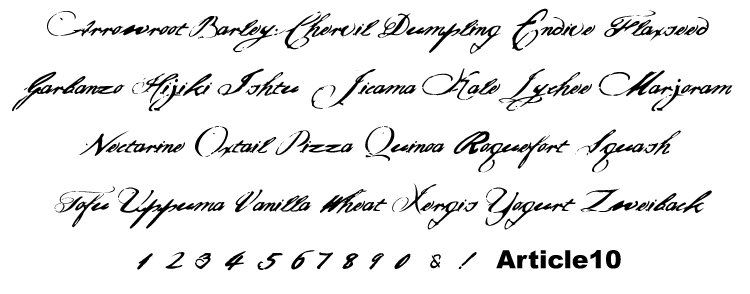 Arrowroot Barley Chervil Dumpling Endive Flaxseed
Garbanzo Hijiki Ishtu Jicama Kale Lychee Marjoram
Nectarine Oxtail Pizza Quinoa Roquefort Squash
Tofu Uppuma Vanilla Wheat Xergis Yogurt Zweiback
1 2 3 4 5 6 7 8 9 0 & ! Article10